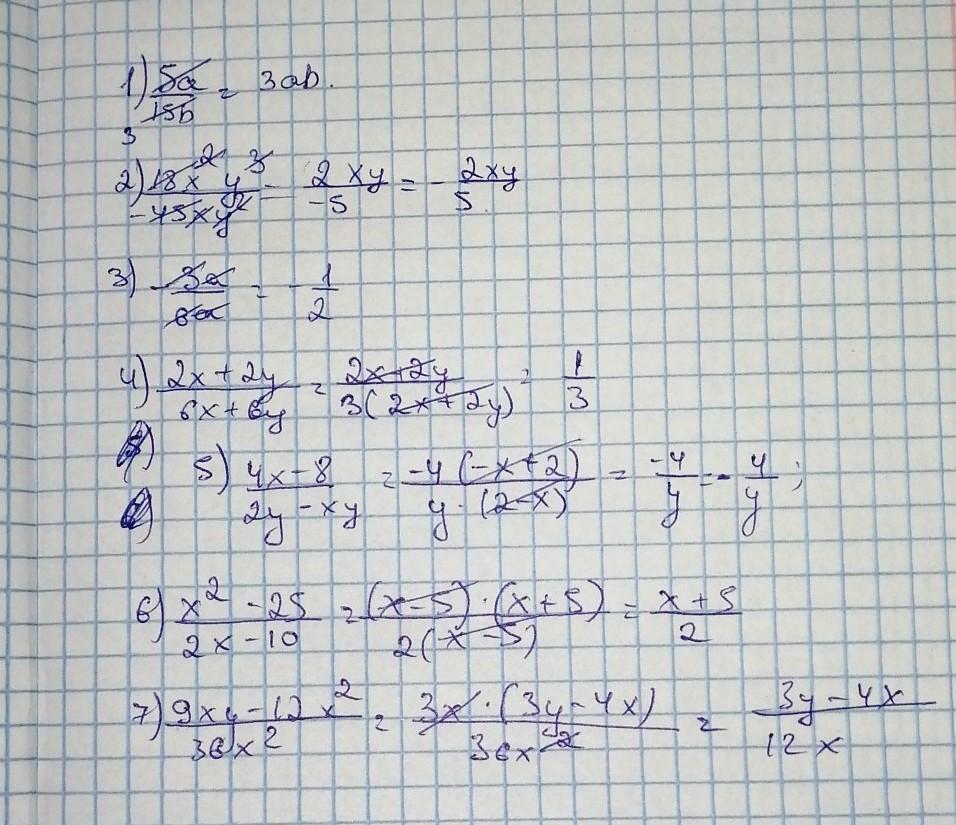 1) 5a/15b = 3ab.
3
2) 18x²y³/-45xy² = 2xy/-5 = - 2xy/5.
3) -3a/6a = - 1/2
4) 2x+2y/6x+6y = 2x+2y/3(2x+2y) = 1/3
5) 4x-8/2y-xy = -4(-x+2)/y·(2-x) = -4/y = - 4/y ;
6) x²-25/2x-10 = (x-5)·(x+5)/2(x-5) = x+5/2
7) 9xy-12x²/36x² = 3x·(3y-4x)/36x² = 3y-4x/12x